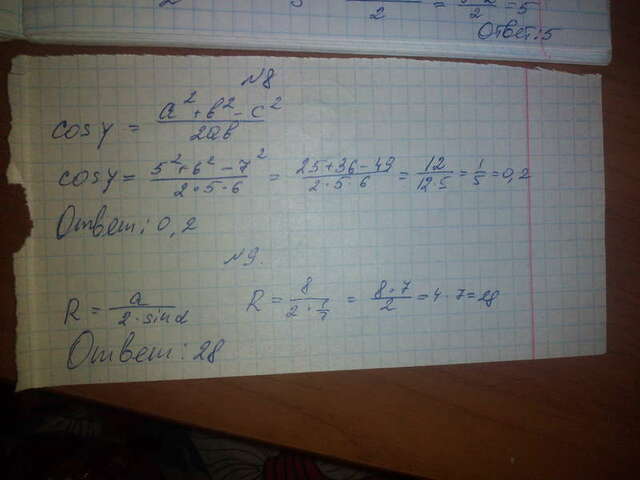 2 = 5
Ответ: 5
№8
cos γ = a² + b² - c² / 2ab
cos γ = 5² + 6² - 7² / 2·5·6 = 25 + 36 - 49 / 2·5·6 = 12 / 12·5 = 1/5 = 0,2
Ответ: 0,2
№9.
R = a / 2·sin α R = 8 / 2·1/7 = 8·7 / 2 = 4·7 = 28
Ответ: 28